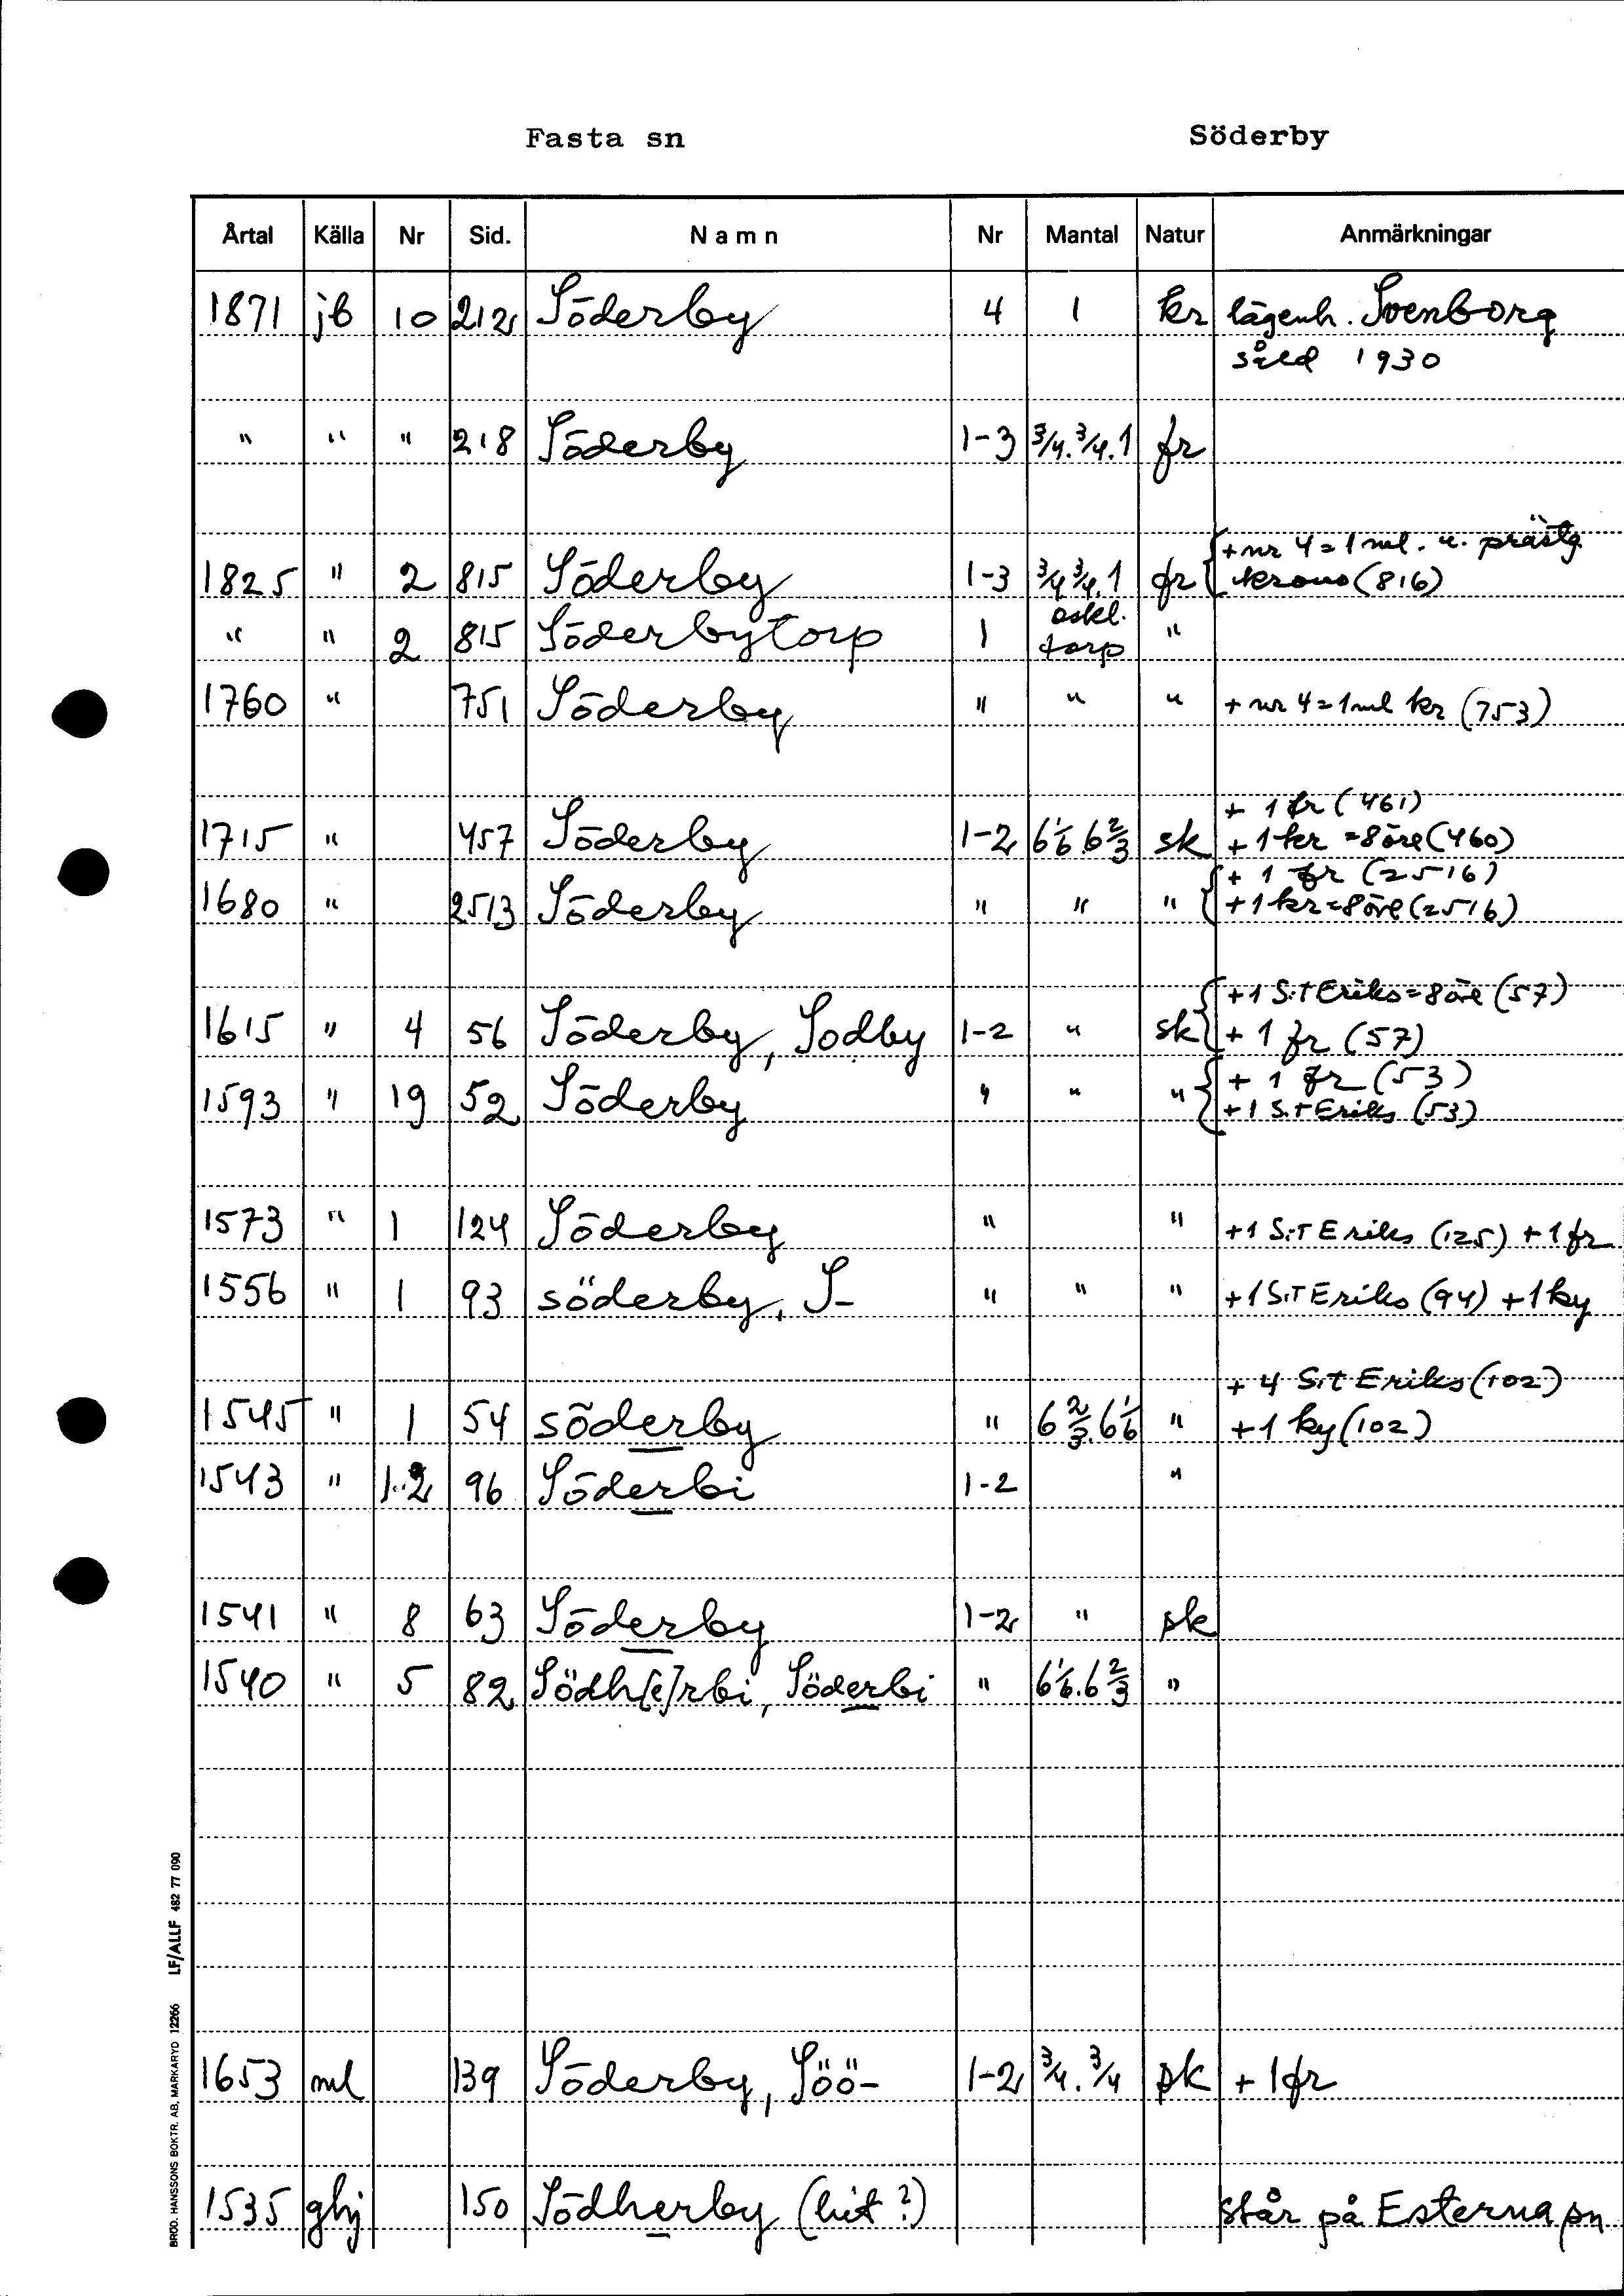 Fasta sn Söderby
Årtal Källa Nr Sid. Namn Nr Mantal Natur Anmärkningar
1871 jb 10 212 Söderby 4 1 kr lägenh. Svenborg
såld 1930
" " " 218 Söderby 1-3 3/4. 3/4. 1 fr
+ nr 4 = 1 ml. u. prästg.
1825 " 2 815 Söderby 1-3 3/4 3/4. 1 fr krono (816)
" " 2 815 Söderbytorp 1 oskl. torp "
1760 " 751 Söderby " " " + nr 4 = 1 ml kr (753)
+ 1 fr (461)
1715 " 457 Söderby 1-2 6 1/6. 6 2/3 sk + 1 kr = 8 öre (460)
+ 1 fr (2516)
1680 " 2513 Söderby " " " + 1 kr = 8 öre (2516)
+ 1 S:t Eriks = 8 öre (57)
1615 " 4 56 Söderby, Sodby 1-2 " sk + 1 fr (57)
+ 1 fr (53)
1593 " 19 52 Söderby " " " + 1 S:t Eriks (53)
1573 " 1 124 Söderby " " + 1 S:T Eriks (125) + 1 fr
1556 " 1 93 söderby, S- " " " + 1 S:T Eriks (94) + 1 ky
+ 4 S:t Eriks (102)
1545 " 1 54 söderby " 6 2/3. 6 1/6 " + 1 ky (102)
1543 " 1.2 96 Söderbi 1-2 "
1541 " 8 63 Söderby 1-2 " sk
1540 " 5 82 Södh[e]rbi, Söderbi " 6 1/6. 6 2/3 "
1653 ml 139 Söderby, Söö- 1-2 3/4. 3/4 sk + 1 fr
1535 ghj 150 Södherby (hit?) står på Esterna sn
BRÖD. HANSSONS BOKTR. AB, MARKARYD 12266 LF/ALLF 482 77 090